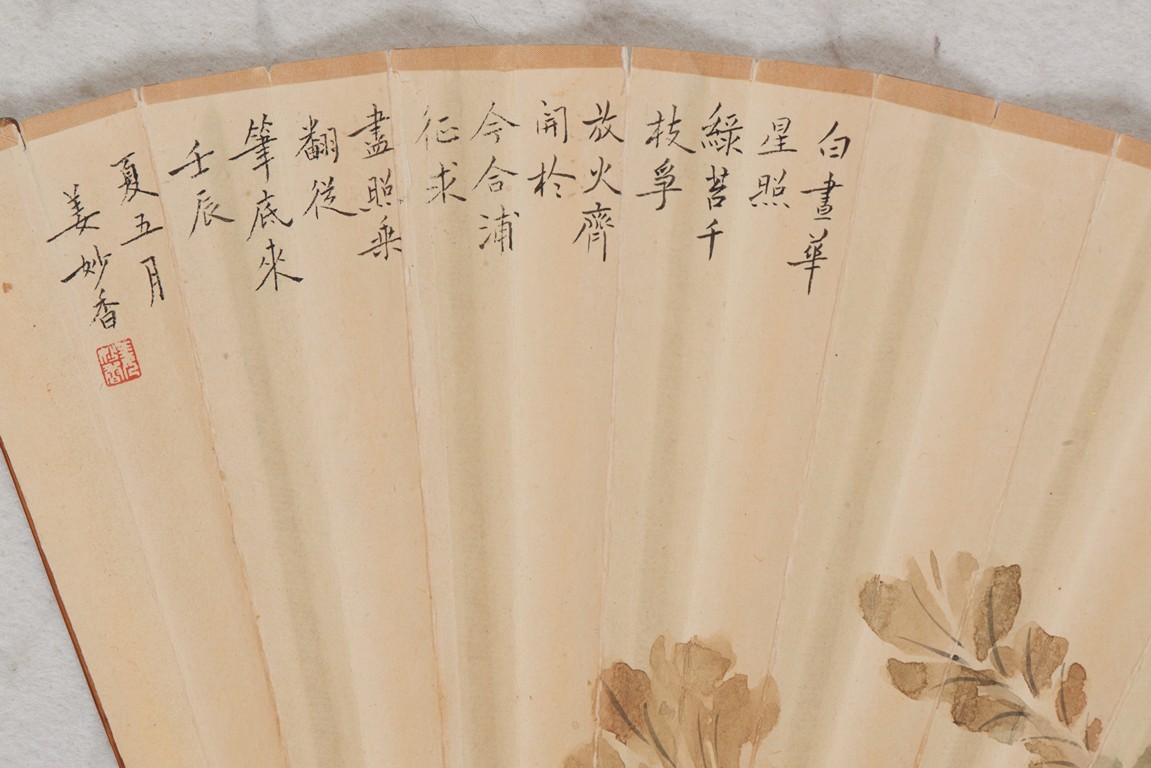 白晝華
星照
綠苔千
枝爭
放火齊
開於
今合浦
征求
盡照乘
翻從
筆底來
壬辰
夏五月
姜妙香